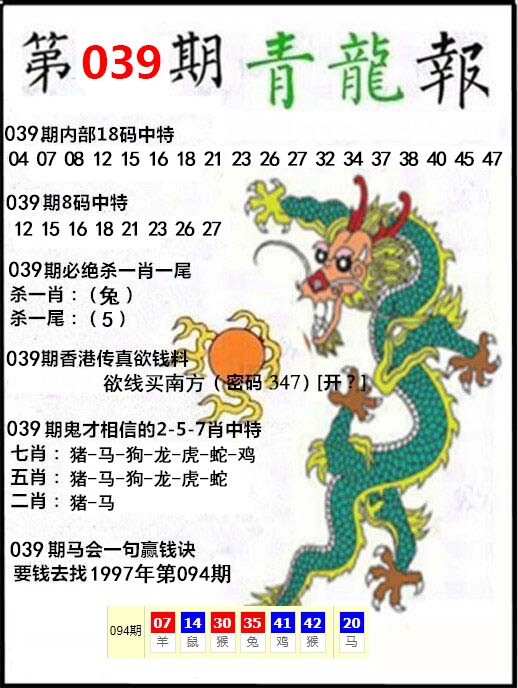 第039期 青龍報
039期内部18码中特
04 07 08 12 15 16 18 21 23 26 27 32 34 37 38 40 45 47
039期8码中特
12 15 16 18 21 23 26 27
039期必绝杀一肖一尾
杀一肖：（兔）
杀一尾：（5）
039期香港传真欲钱料
欲线买南方（密码 347）[开？]
039期鬼才相信的2-5-7肖中特
七肖：猪-马-狗-龙-虎-蛇-鸡
五肖：猪-马-狗-龙-虎-蛇
二肖：猪-马
039期马会一句赢钱诀
要钱去找1997年第094期
094期 07 14 30 35 41 42 20
羊 鼠 猴 兔 鸡 猴 马